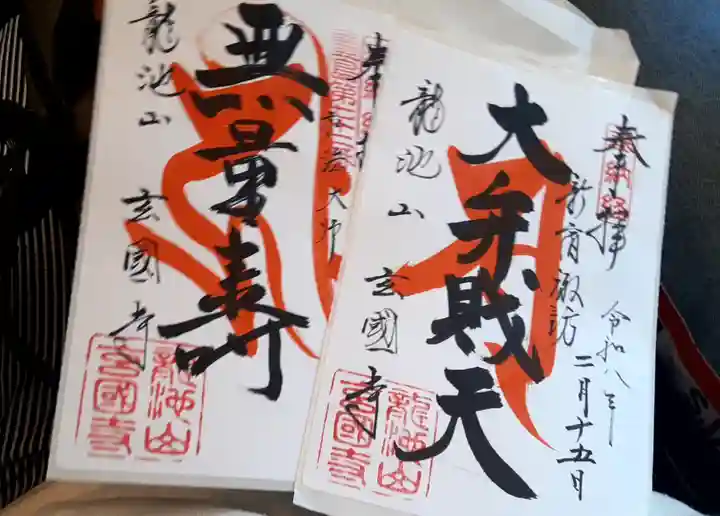 奉拝
令和八年
二月十五日
新宿諏訪
大弁財天
龍池山
玄國寺
龍池山
玄國寺
奉拝
弘法大師
無量壽
龍池山
玄國寺
龍池山
玄國寺